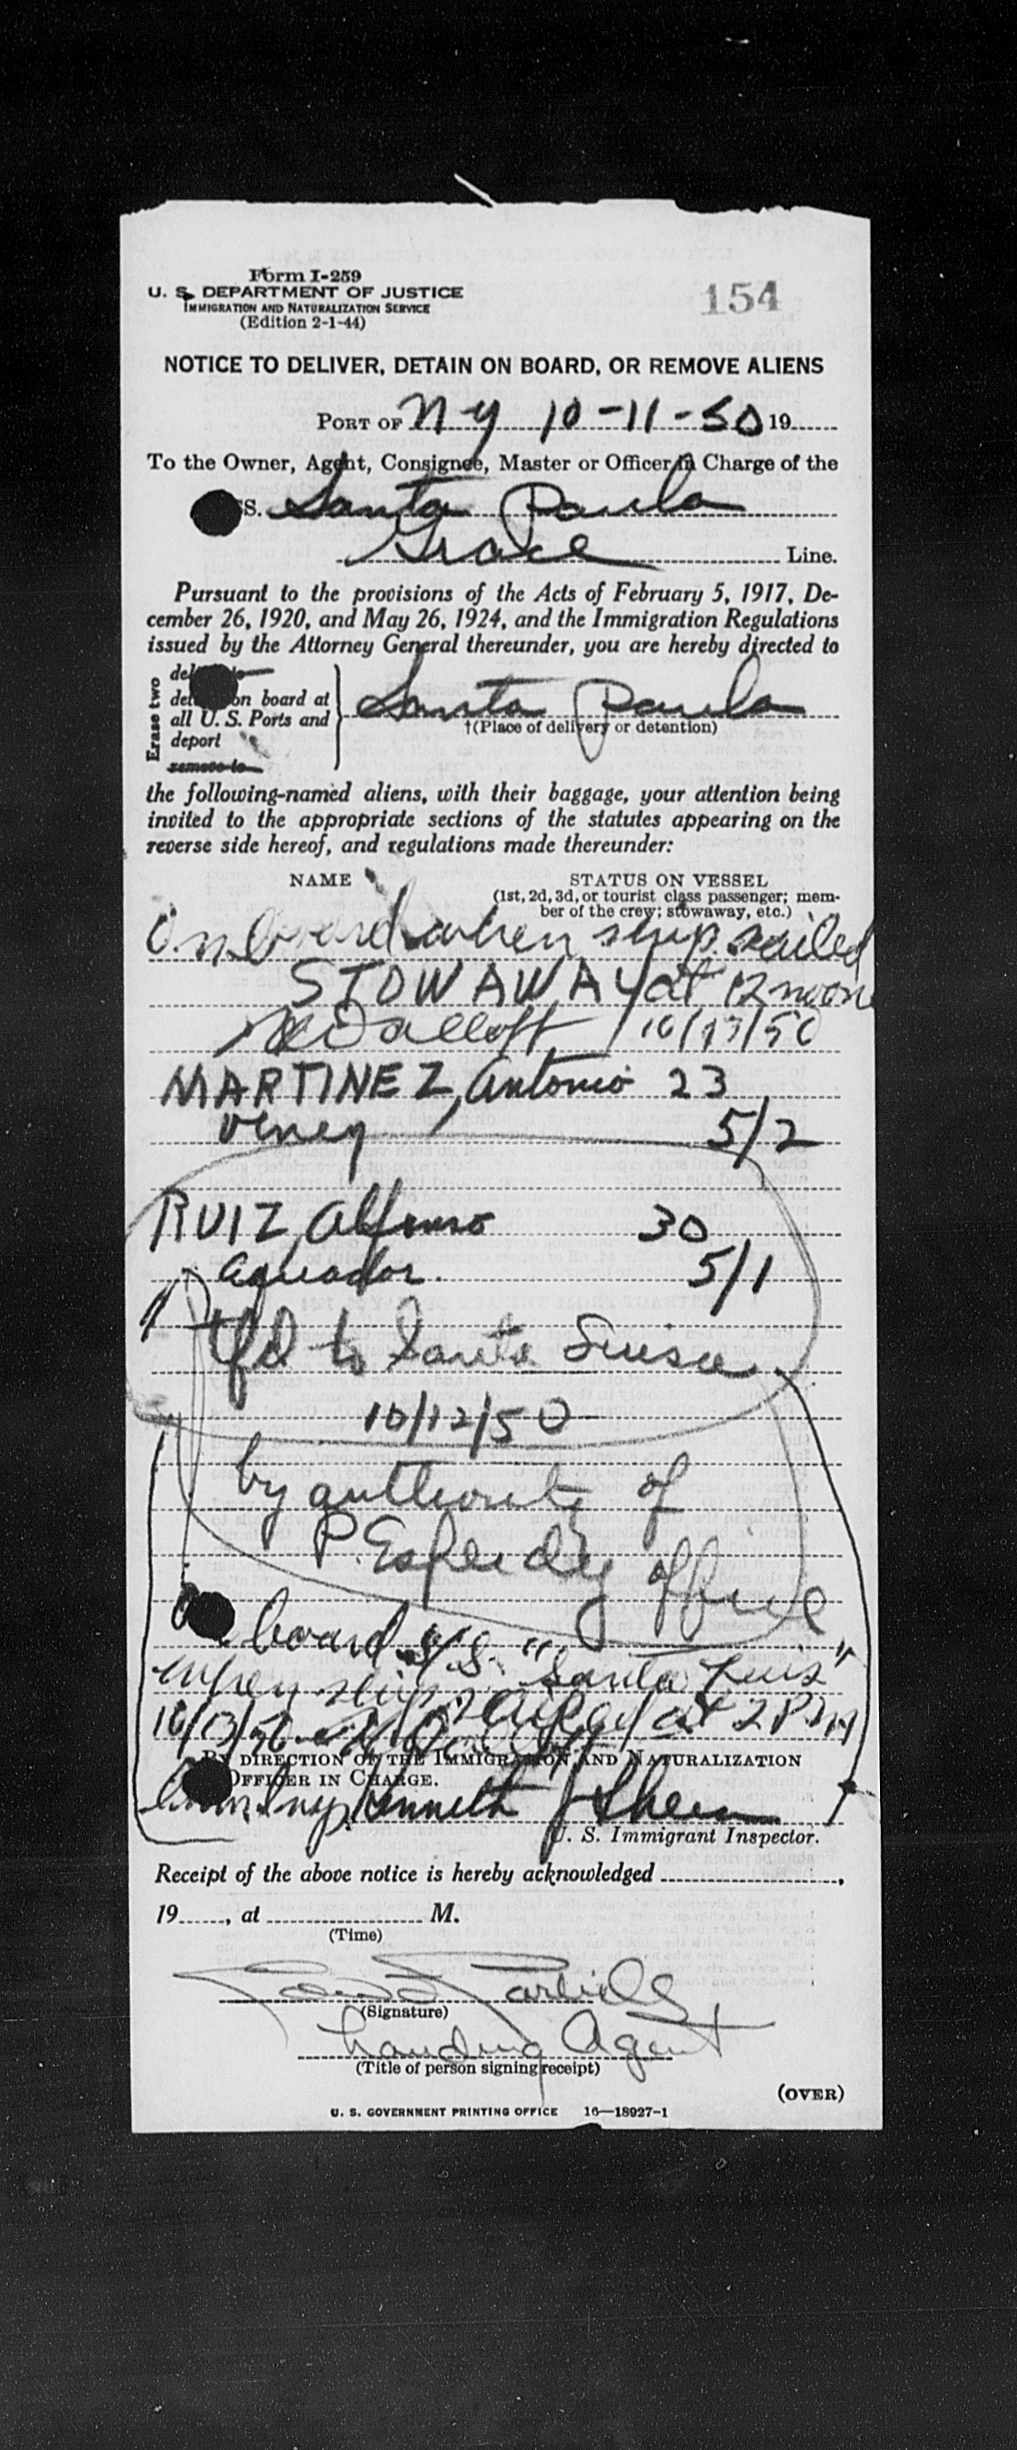 Form I-259
U. S. DEPARTMENT OF JUSTICE
IMMIGRATION AND NATURALIZATION SERVICE
(Edition 2-1-44)
154
NOTICE TO DELIVER, DETAIN ON BOARD, OR REMOVE ALIENS
PORT OF N-Y 10-11-50 19
To the Owner, Agent, Consignee, Master or Officer in Charge of the
SS. Santa Paula
Grace Line.
Pursuant to the provisions of the Acts of February 5, 1917, De-
cember 26, 1920, and May 26, 1924, and the Immigration Regulations
issued by the Attorney General thereunder, you are hereby directed to
Erase two
on board at
all U. S. Ports and
deport
remove to
Santa Paula
†(Place of delivery or detention)
the following-named aliens, with their baggage, your attention being
invited to the appropriate sections of the statutes appearing on the
reverse side hereof, and regulations made thereunder:
NAME STATUS ON VESSEL
(1st, 2d, 3d, or tourist class passenger; mem-
ber of the crew; stowaway, etc.)
On board when ship sailed
STOWAWAY at 12 noon
10/13/50
MARTINEZ, Antonio 23
Venez 5/2
RUIZ, Alfonso 30
Aquador 5/1
Tfd to Santa
10/12/50
by authority of
P. Esperdy office
board S/S. "Santa Luis"
when ship sailed at 2 PM
10/13/50
BY DIRECTION OF THE IMMIGRATION AND NATURALIZATION
OFFICER IN CHARGE.
Kenneth J Shea
U. S. Immigrant Inspector.
Receipt of the above notice is hereby acknowledged ,
19 , at M.
(Time)
(Signature)
Landing Agent
(Title of person signing receipt)
(OVER)
U. S. GOVERNMENT PRINTING OFFICE 16—18927-1